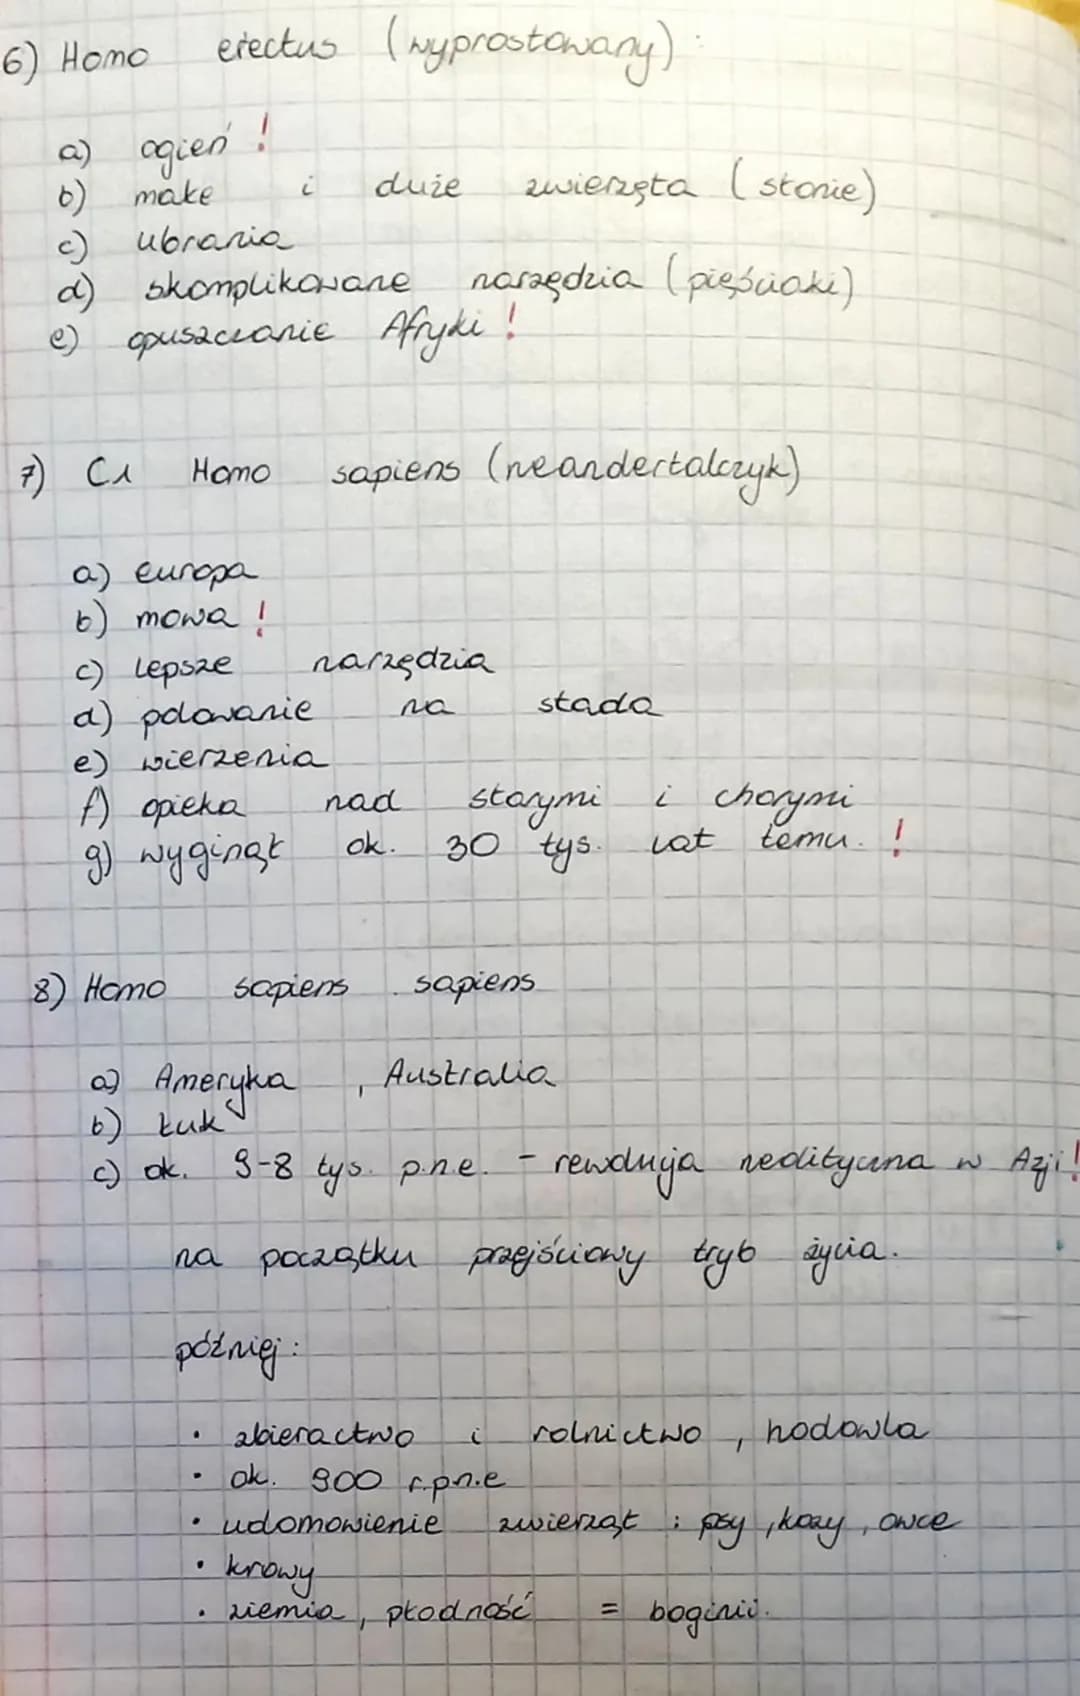 6) Homo erectus (wyprostowany):
a) ogień !
b) małe i duże zwierzęta (słonie)
c) ubrania
d) skomplikowane narzędzia (pięściaki)
e) opuszczanie Afryki !
7) Homo sapiens (neandertalczyk)
a) Europa
b) mowa !
c) lepsze narzędzia
d) polowanie na stada
e) wierzenia
f) opieka nad starymi i chorymi
g) wyginął ok. 30 tys. lat temu. !
8) Homo sapiens sapiens
a) Ameryka, Australia
b) Łuk
c) ok. 9-8 tys. p.n.e. - rewolucja neolityczna w Azji !
na początku przejściowy tryb życia.
później:
• zbieractwo i rolnictwo, hodowla
• ok. 900 r.p.n.e
• udomowienie zwierząt : psy, kozy, owce
• krowy
• ziemia, płodność = bogini.